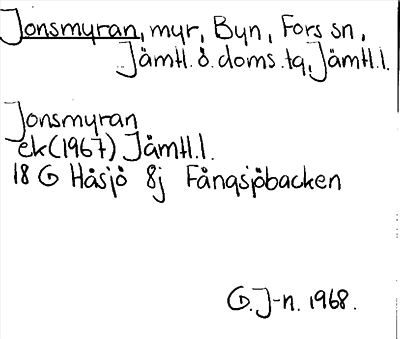 Jonsmyran, myr, Byn, Fors sn,
Jämtl. ö. doms. tg, Jämtl. l.
Jonsmyran
ek (1967) Jämtl. l.
18 G Håsjö 8j Fångsjöbacken
G. J-n. 1968.